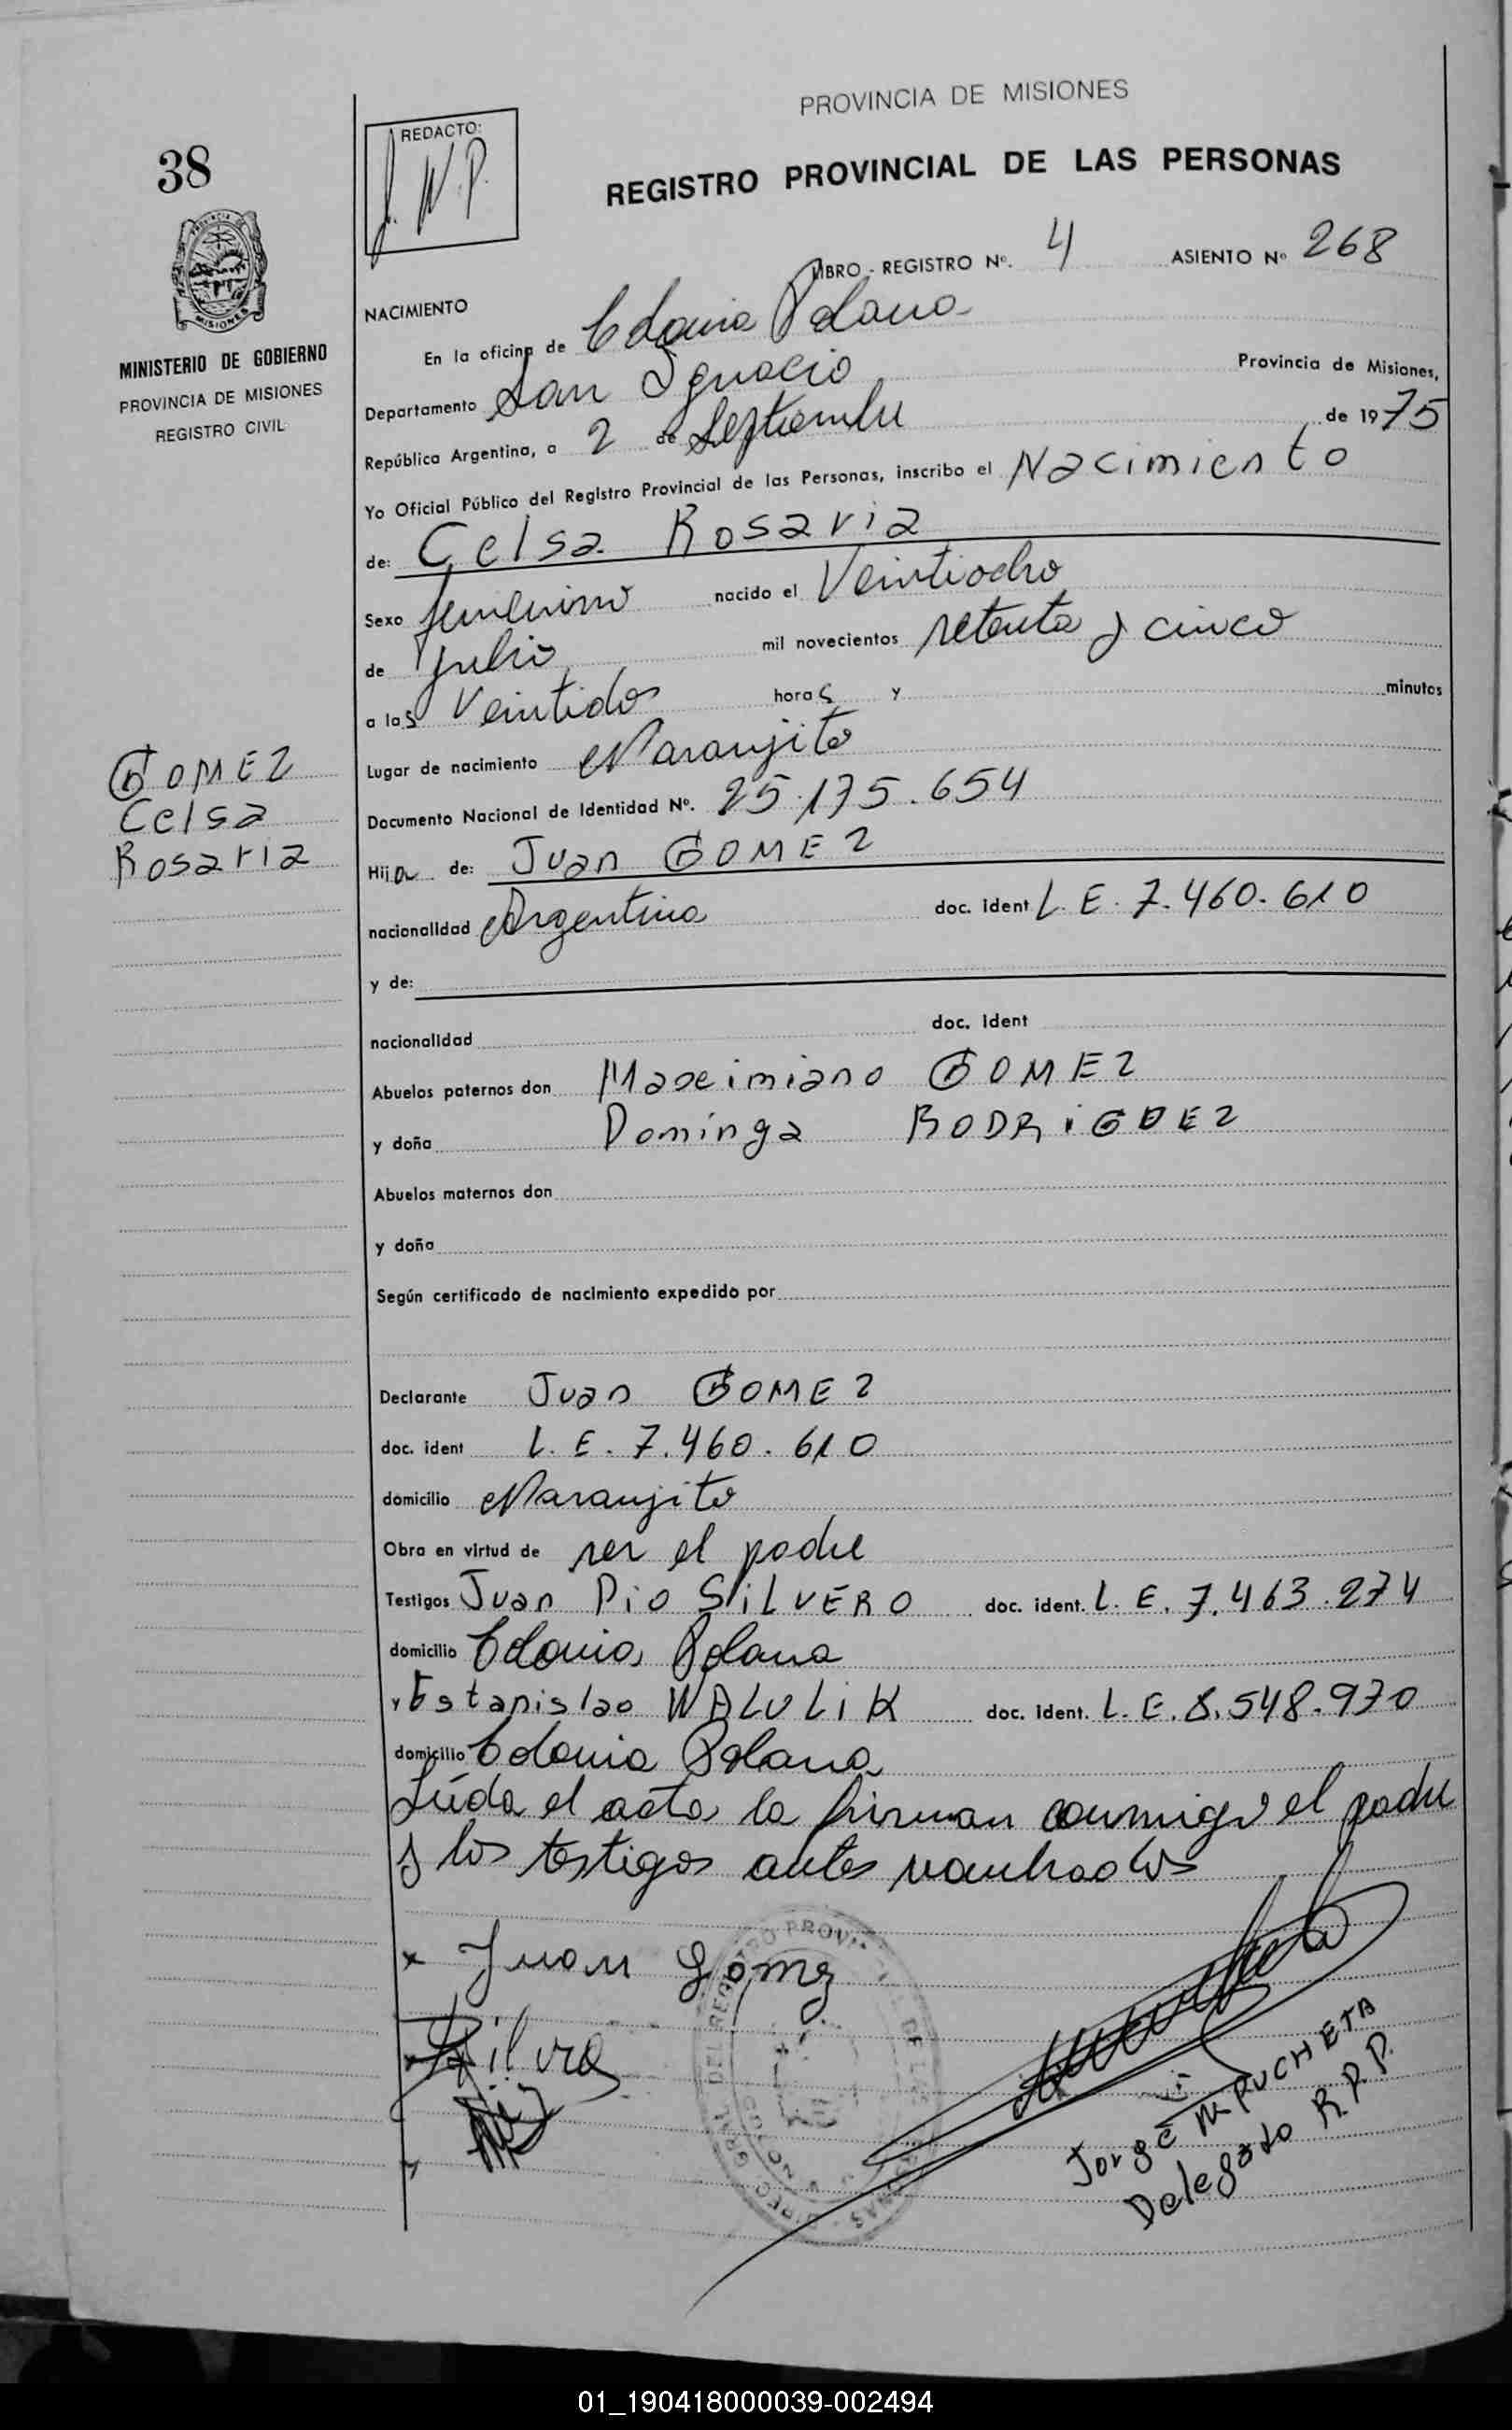 PROVINCIA DE MISIONES
38
REDACTO:
J. N. P.
REGISTRO PROVINCIAL DE LAS PERSONAS
LIBRO - REGISTRO Nº. 4 ASIENTO Nº 268
MISIONES
MINISTERIO DE GOBIERNO
PROVINCIA DE MISIONES
REGISTRO CIVIL
NACIMIENTO
En la oficina de Colonia Polana
Departamento San Ignacio Provincia de Misiones,
República Argentina, a 2 de Septiembre de 1975
Yo Oficial Público del Registro Provincial de las Personas, inscribo el Nacimiento
de: Celsa Rosaria
Sexo femenino nacido el Veintiocho
de julio mil novecientos setenta y cinco
a las Veintidos horas y minutos
GOMEZ
Celsa
Rosaria
Lugar de nacimiento Naranjito
Documento Nacional de Identidad Nº. 25.175.654
Hija de: Juan GOMEZ
nacionalidad Argentina doc. ident L.E. 7.460.610
y de:
nacionalidad doc. ident
Abuelos paternos don Maximiano GOMEZ
y doña Dominga RODRiGUEZ
Abuelos maternos don
y doña
Según certificado de nacimiento expedido por
Declarante Juan GOMEZ
doc. ident L.E. 7.460.610
domicilio Naranjito
Obra en virtud de ser el padre
Testigos Juan Pio SiLVERO doc. ident. L.E. 7.463.274
domicilio Colonia Polana
y Estanislao WALULiK doc. ident. L.E. 8.548.970
domicilio Colonia Polana
Leída el acta la firman conmigo el padre
y los testigos antes nombrados
x Juan Gómez
Jorge M PUCHETA
Delegado R.P.P.
01_190418000039-002494